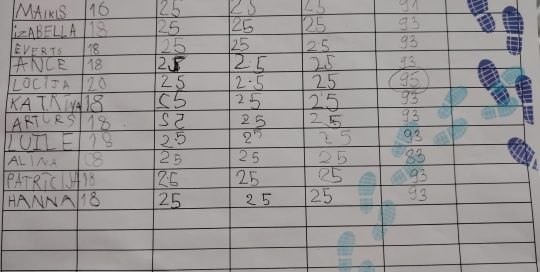 MAIKLS 16 25 25 25 91
iZABELLA 18 25 25 25 93
EVERTS 18 25 25 25 93
ANCE 18 25 25 25 93
LOCIJA 20 25 25 25 95
KATRĪNA 18 25 25 25 93
ARTURS 18 25 25 25 93
LUILE 18 25 25 25 93
ALINA 08 25 25 25 83
PATRICIJA 18 25 25 25 93
HANNA 18 25 25 25 93